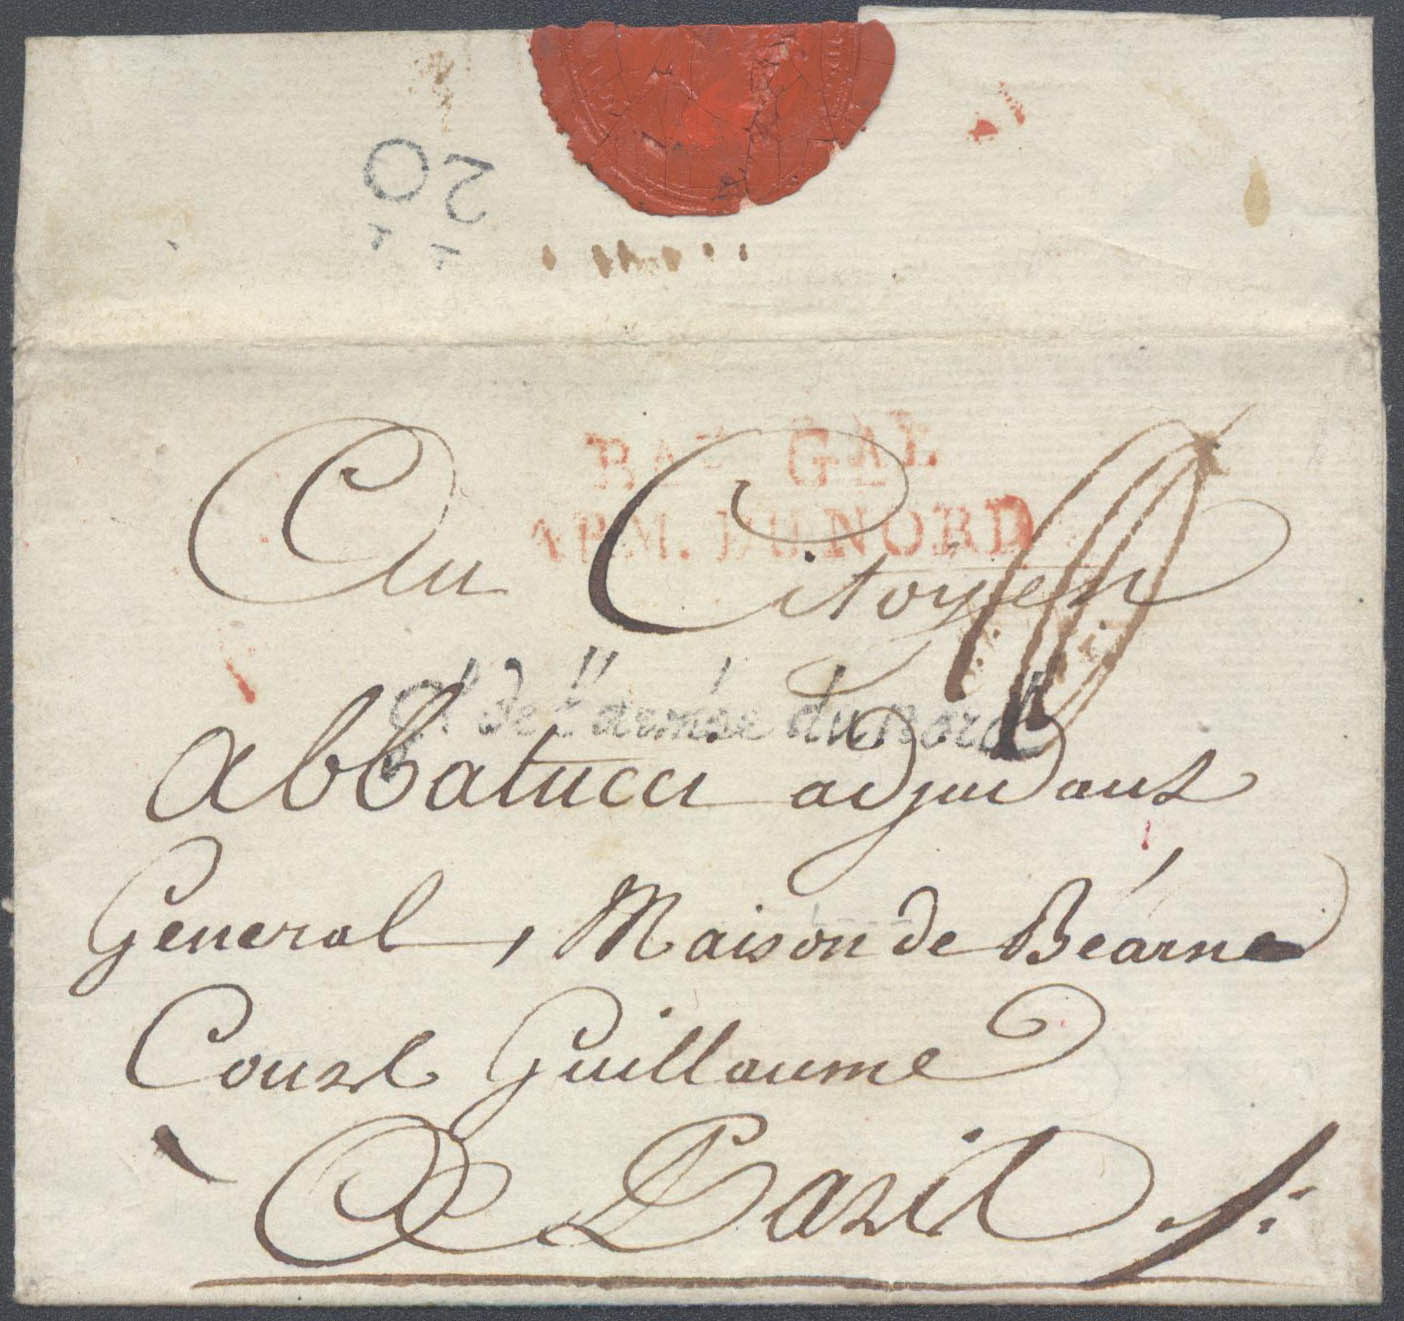 20
BAU GAL
ARM. DU NORD
Au Citoyen
gl de l'armée du nord
Abbatucci adjudant
General, Maison de Béarne
Court Guillaume
A Paris